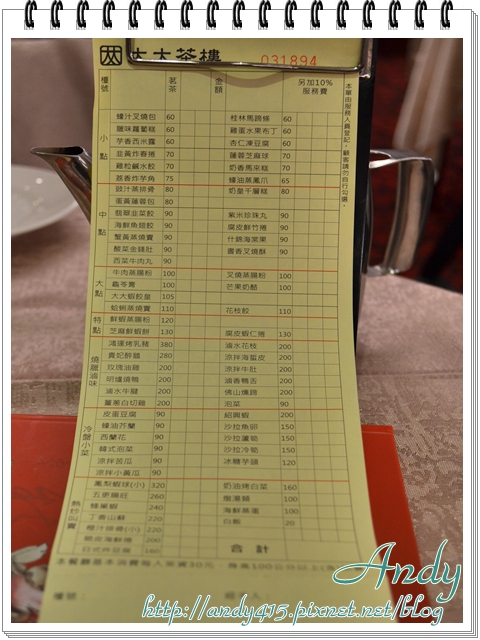 大大茶樓
031894
樓號 茗茶 金額 另加10%服務費
本單由服務人員登記，顧客請勿自行勾選。
小點
蠔汁叉燒包 60 桂林馬蹄條 60
臘味蘿蔔糕 60 雞蛋水果布丁 60
芋香西米露 60 杏仁凍豆腐 60
韭黃炸春捲 70 蓮蓉芝麻球 70
雞粒鹹水餃 70 奶香馬來糕 70
荔香炸芋角 75 蠔油蒸鳳爪 65
中點
豉汁蒸排骨 80 奶皇千層糕 80
蛋黃蓮蓉包 80
翡翠韭菜餃 90 紫米珍珠丸 90
海鮮魚翅餃 90 腐皮鮮竹捲 90
蟹黃蒸燒賣 90 什錦海棠果 90
酸菜金錢肚 90 酥香叉燒酥 90
西菜牛肉丸 90
大點
牛肉蒸腸粉 100 叉燒蒸腸粉 100
龜苓膏 100 芒果奶酪 100
大大蝦餃皇 105
蛤蜊蒸燒賣 110 花枝餃 110
特點
鮮蝦蒸腸粉 120
芝麻鮮蝦餅 130 腐皮蝦仁捲 130
燒臘滷味
鴻運烤乳豬 380 滷水花枝 200
貴妃醉雞 280 涼拌海蜇皮 200
玫瑰油雞 200 涼拌牛肚 200
明爐燒鴨 200 滷香鴨舌 200
滷水牛腱 200 佛山燻蹄 200
薑蔥白切雞 200 泡菜 90
冷盤小菜
皮蛋豆腐 90 紹興蝦 200
蠔油芥蘭 90 沙拉魚卵 150
西蘭花 90 沙拉蘆筍 150
韓式泡菜 90 沙拉冷筍 150
涼拌苦瓜 90 冰糖芋頭 120
涼拌小黃瓜 90
熱炒叫賣
鳳梨蝦球(小) 320 奶油烤白菜 160
五更腸旺 260
240 海鮮蒸蛋 100
丁香山蘇 220 白飯 20
橙汁排骨(小) 220
200
160
合計
Andy
http://andy415.pixnet.net/blog